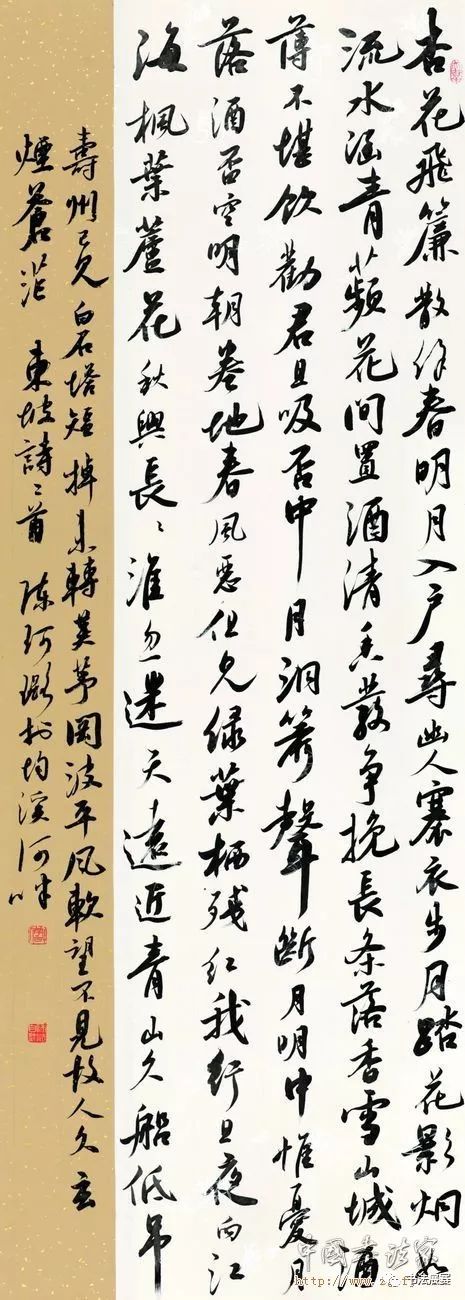 杏花飛簾散餘春明月入戶尋幽人褰衣步月踏花影炯如
流水涵青蘋花間置酒清香發爭挽長條落香雪山城酒
薄不堪飲勸君且吸杯中月洞簫聲斷月明中惟憂月
落酒杯空明朝卷地春風惡但見綠葉棲殘紅我行日夜向江
海楓葉蘆花秋興長〻淮忽迷天遠近青山久船低昂
壽州已見白石塔短棹未轉黃茅岡波平風軟望不見故人久立
煙蒼茫 東坡詩二首 陳阿璐於均溪河畔
中国书法家